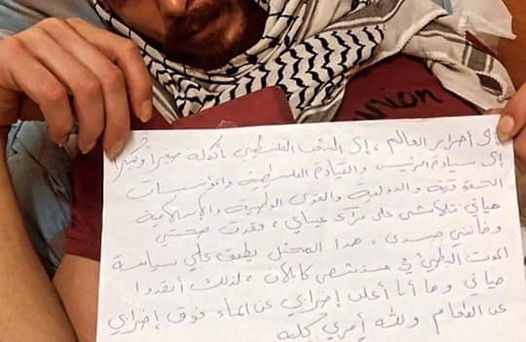 إلى أحرار العالم، إلى الشعب الفلسطيني بأكمله صغيرا وكبيرا
إلى سيادة الرئيس والقيادة الفلسطينية والمؤسسات
الحقوقية والدولية والقوى الوطنية والإسلامية
حياتي تتلاشى على مرأى عيناي، فقدت صحتي
وخانني جسدي، هذا المحتل يطبق علي سياسة
الموت البطيء في مستشفى كابلان، لذلك أنقذوا
حياتي وها أنا أعلن إضرابي عن الماء فوق إضرابي
عن الطعام ولله أمري كله
union